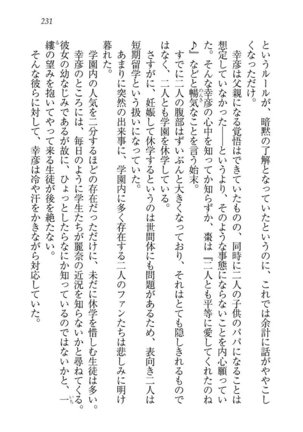 231
というルールが、暗黙の了解となっていたというのに、これでは余計に話がややこし
くなっただけだ。
幸彦は父親になる覚悟はできていたものの、同時に二人の子供のパパになることは
想定していなかった――というより、そのような事態にならないことを内心願ってい
た。そんな幸彦の心中を知ってか知らずか、棗は『二人とも平等に愛してくれたのね』
などと暢気なことを言う始末。
のんき
すでに、二人の腹部はずいぶんと大きくなっており、それはとても隠しきれるもので
はなく、二人とも学園を休学している。
さすがに、妊娠して休学するというのは世間体にも問題があるため、表向き二人は
短期留学という扱いになっていた。
あまりに突然の出来事に、学園内に多く存在する二人のファンたちは悲しみに明け
暮れた。
学園内の人気を二分するほどの存在だっただけに、未だに休学を惜しむ生徒は多い。
幸彦のところには、毎日のように学生たちが麗奈の近況を知らないかと尋ねてくる。
彼女の幼なじみであるが故に、ひょっとしたらなにか知っているのではないかと、一
縷の望みを抱いてやって来る生徒が後を絶たない。
そんな彼らに対して、幸彦は冷や汗をかきながら対応していた。